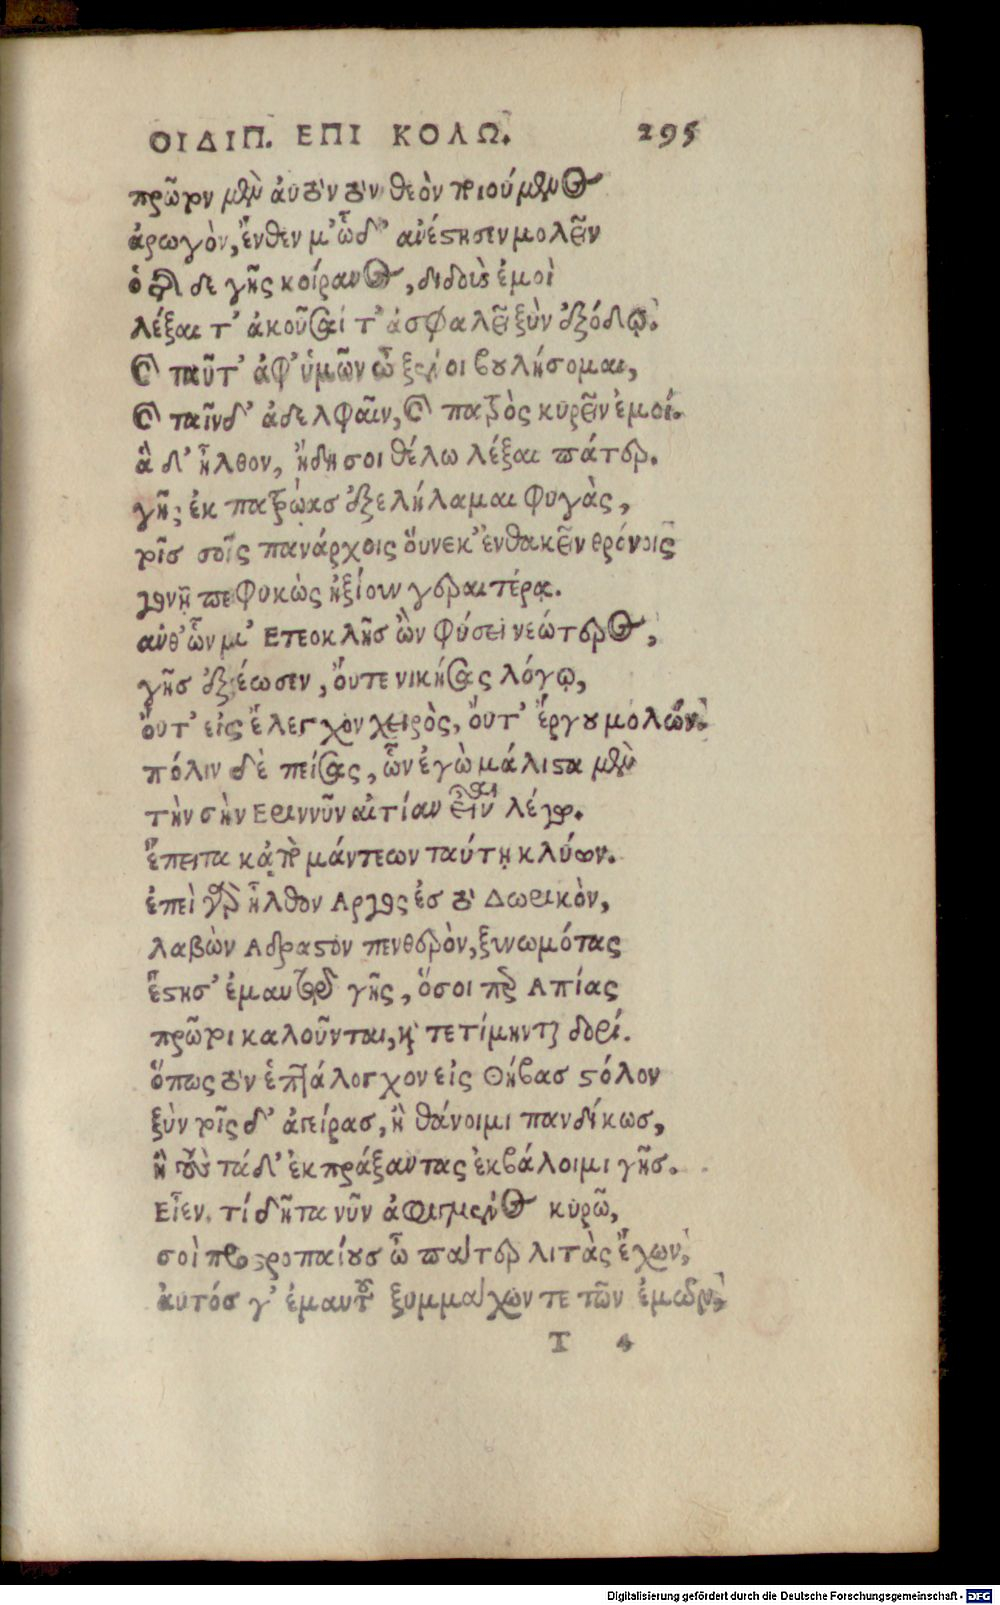 ΟΙΔΙΠ. ΕΠΙ ΚΟΛΩ. 295
πρῶτον μὲν ἀυτὸν τὸν θεὸν ποιούμενος
ἀρωγὸν, ἔνθεν μ' ὧδ' ἀνέστησεν μολεῖν
ὁ τῆσδε γῆς κοίρανος, διδοὺς ἐμοὶ
λέξαι τ' ἀκοῦσαί τ' ἀσφαλεῖ ξὺν ἐξόδῳ.
καὶ ταῦτ' ἀφ' ὑμῶν ὦ ξένοι βουλήσομαι,
καὶ ταῖνδ' ἀδελφαῖν, καὶ πατρὸς κυρεῖν ἐμοί.
ἃ δ' ἦλθον, ἤδη σοι θέλω λέξαι πάτερ.
γῆς ἐκ πατρῴας ἐξελήλαμαι φυγὰς,
τοῖς σοῖς πανάρχοις οὕνεκ' ἐνθακεῖν θρόνοις
γονῇ πεφυκὼς ἠξίουν γεραιτέρᾳ.
ἀνθ' ὧν μ' Ετεοκλῆς ὢν φύσει νεώτερος,
γῆς ἐξέωσεν, ὄυτε νικήσας λόγῳ,
ὄυτ' εἰς ἔλεγχον χειρὸς, ὄυτ' ἔργου μολών.
πόλιν δὲ πείσας, ὧν ἐγὼ μάλιστα μὲν
τὴν σὴν Εριννῦν αἰτίαν εἶναι λέγω.
ἔπειτα κἀπὸ μάντεων ταύτῃ κλύων.
ἐπεὶ γὰρ ἦλθον Αργος ἐς τὸ Δωρικὸν,
λαβὼν Αδραστον πενθερὸν, ξυνωμότας
ἔστησ' ἐμαυτῷ γῆς, ὅσοι περ Απίας
πρῶτοι καλοῦνται, καὶ τετίμηνται δορί.
ὅπως τὸν ἑπτάλογχον εἰς Θήβας στόλον
ξὺν τοῖς δ' ἀγείρας, ἢ θάνοιμι πανδίκως,
ἢ τοὺς τάδ' ἐκπράξαντας ἐκβάλοιμι γῆς.
Εἶεν. τί δῆτα νῦν ἀφιγμένος κυρῶ,
σοὶ προστροπαίους ὦ πάτερ λιτὰς ἔχων,
ἀυτός γ' ἐμαυτοῦ ξυμμάχων τε τῶν ἐμῶν,
T 4
Digitalisierung gefördert durch die Deutsche Forschungsgemeinschaft - DFG